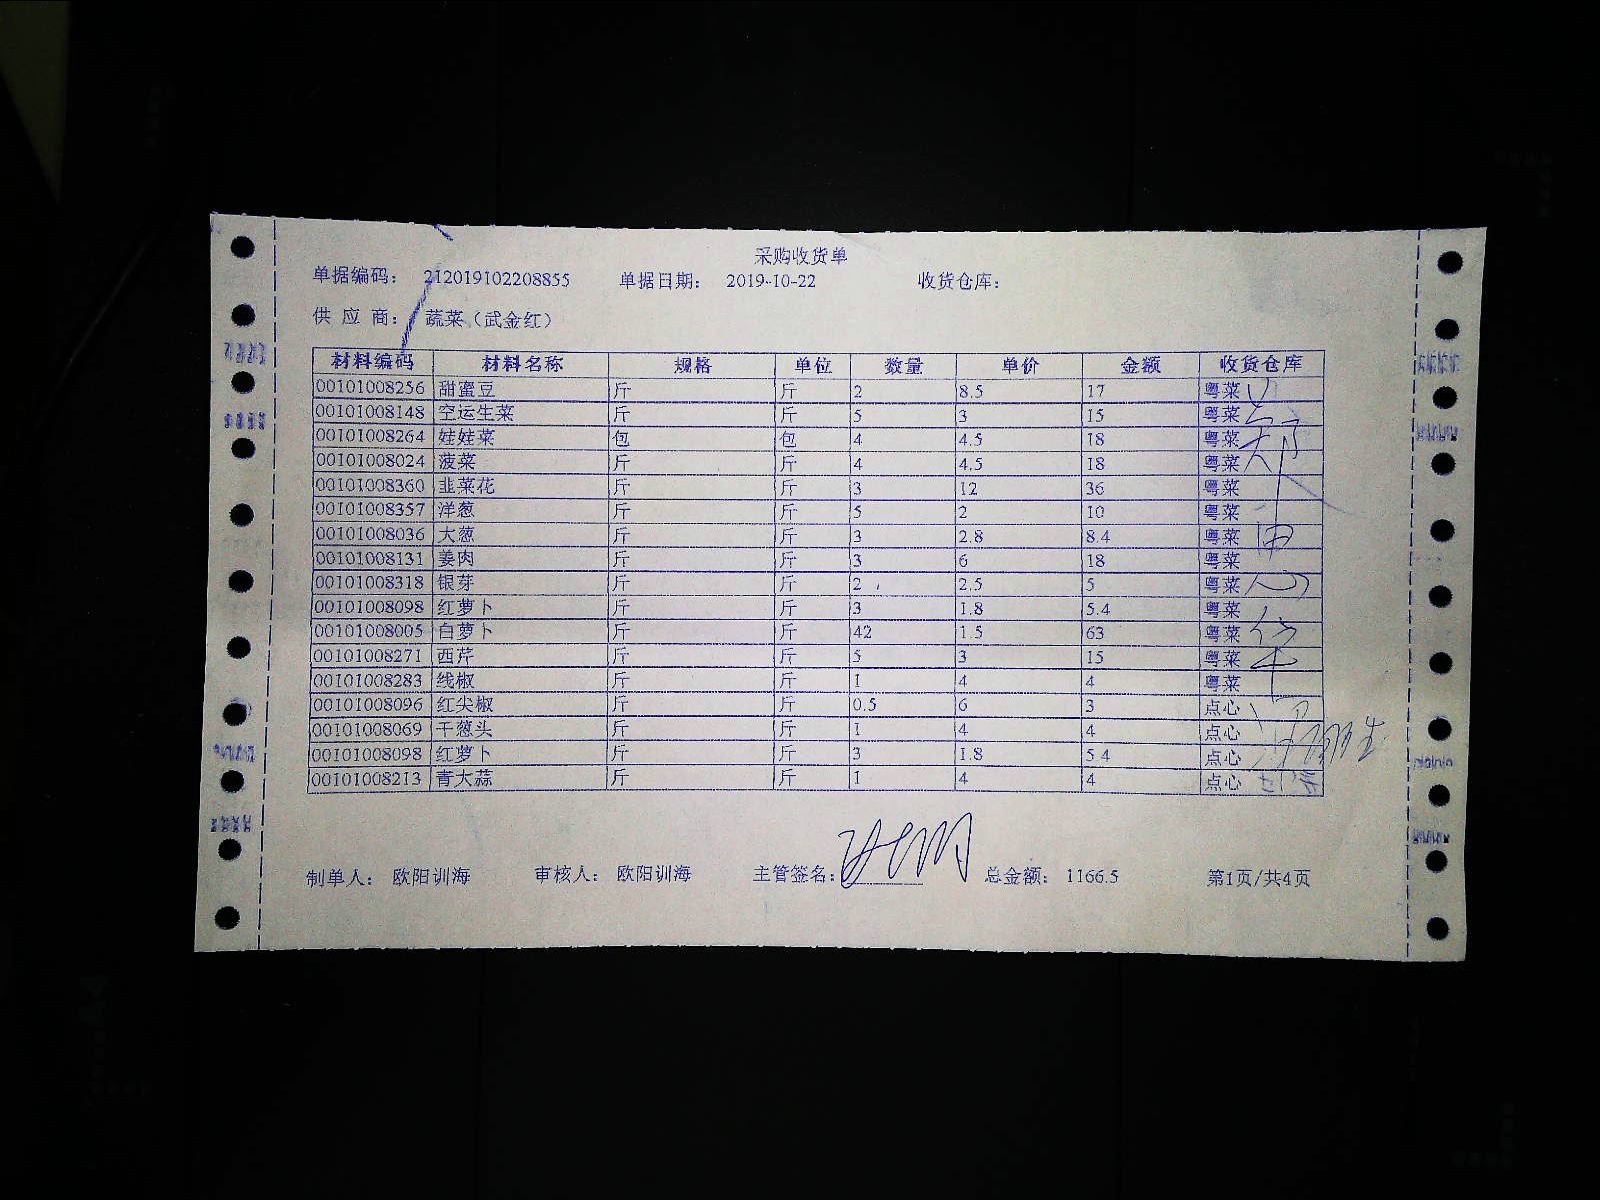 采购收货单
单据编码： 212019102208855 单据日期： 2019-10-22 收货仓库：
供 应 商： 蔬菜（武金红）
材料编码 材料名称 规格 单位 数量 单价 金额 收货仓库
00101008256 甜蜜豆 斤 斤 2 8.5 17 粤菜
00101008148 空运生菜 斤 斤 5 3 15 粤菜
00101008264 娃娃菜 包 包 4 4.5 18 粤菜
00101008024 菠菜 斤 斤 4 4.5 18 粤菜
00101008360 韭菜花 斤 斤 3 12 36 粤菜
00101008357 洋葱 斤 斤 5 2 10 粤菜
00101008036 大葱 斤 斤 3 2.8 8.4 粤菜
00101008131 姜肉 斤 斤 3 6 18 粤菜
00101008318 银芽 斤 斤 2 2.5 5 粤菜
00101008098 红萝卜 斤 斤 3 1.8 5.4 粤菜
00101008005 白萝卜 斤 斤 42 1.5 63 粤菜
00101008271 西芹 斤 斤 5 3 15 粤菜
00101008283 线椒 斤 斤 1 4 4 粤菜
00101008096 红尖椒 斤 斤 0.5 6 3 点心
00101008069 干葱头 斤 斤 1 4 4 点心
00101008098 红萝卜 斤 斤 3 1.8 5.4 点心
00101008213 青大蒜 斤 斤 1 4 4 点心
制单人： 欧阳训海 审核人： 欧阳训海 主管签名： 总金额： 1166.5 第1页/共4页